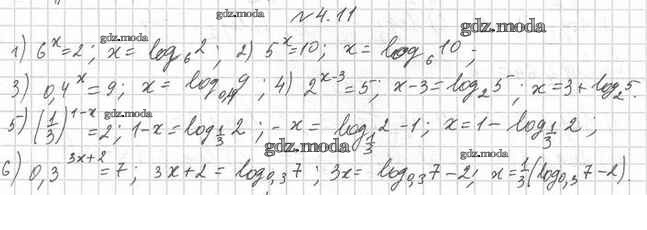 №4.11
1) 6^x=2; x=log_6 2; 2) 5^x=10; x=log_6 10;
3) 0,4^x=9; x=log_0,4 9; 4) 2^(x-3)=5; x-3=log_2 5; x=3+log_2 5.
5) (1/3)^(1-x)=2; 1-x=log_(1/3) 2; -x=log_(1/3) 2-1; x=1-log_(1/3) 2;
6) 0,3^(3x+2)=7; 3x+2=log_0,3 7; 3x=log_0,3 7-2; x=1/3(log_0,3 7-2).
gdz.moda
gdz.moda
gdz.moda
gdz.moda
gdz.moda
gdz.moda